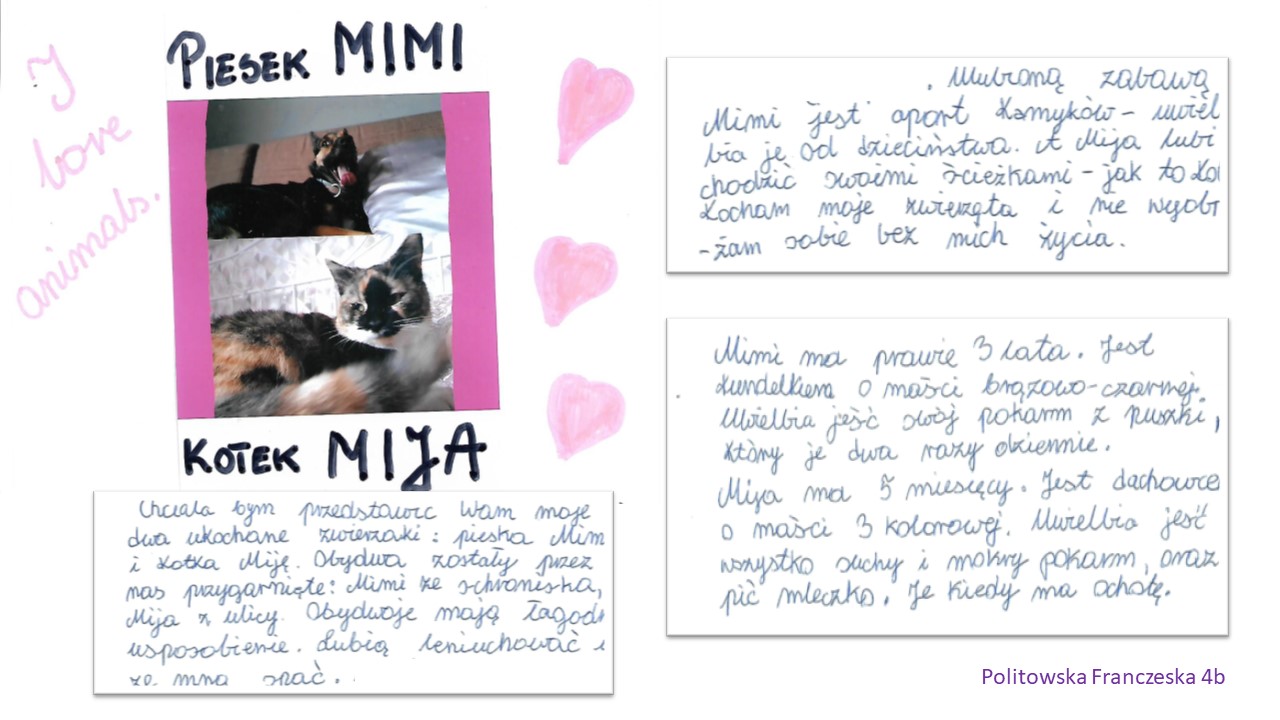 I
love
animals.
PIESEK MIMI
KOTEK MIJA
Chciała bym przedstawic Wam moje
dwa ukochane zwierzaki: pieska Mim
i kotka Miję. Obydwa zostały przez
nas przygarnięte: Mimi ze schroniska,
Mija z ulicy. Obydwoje mają łagod
usposobienie. Lubią leniuchować i
ze mną spać.
Mimi ma prawie 3 lata. Jest
kundelkiem o maści brązowo-czarnej.
Uwielbia jeść swój pokarm z puszki,
który je dwa razy dziennie.
Mija ma 5 miesięcy. Jest dachowce
o maści 3 kolorowej. Uwielbia jeść
wszystko suchy i mokry pokarm, oraz
pić mleczko. Je kiedy ma ochotę.
. Ulubioną zabawą
Mimi jest aport kamyków - uwiel
bia je od dzieciństwa. A Mija lubi
chodzić swoimi ścieżkami - jak to ko
Kocham moje zwierzęta i nie wyobr
-żam sobie bez nich życia.
Politowska Franczeska 4b